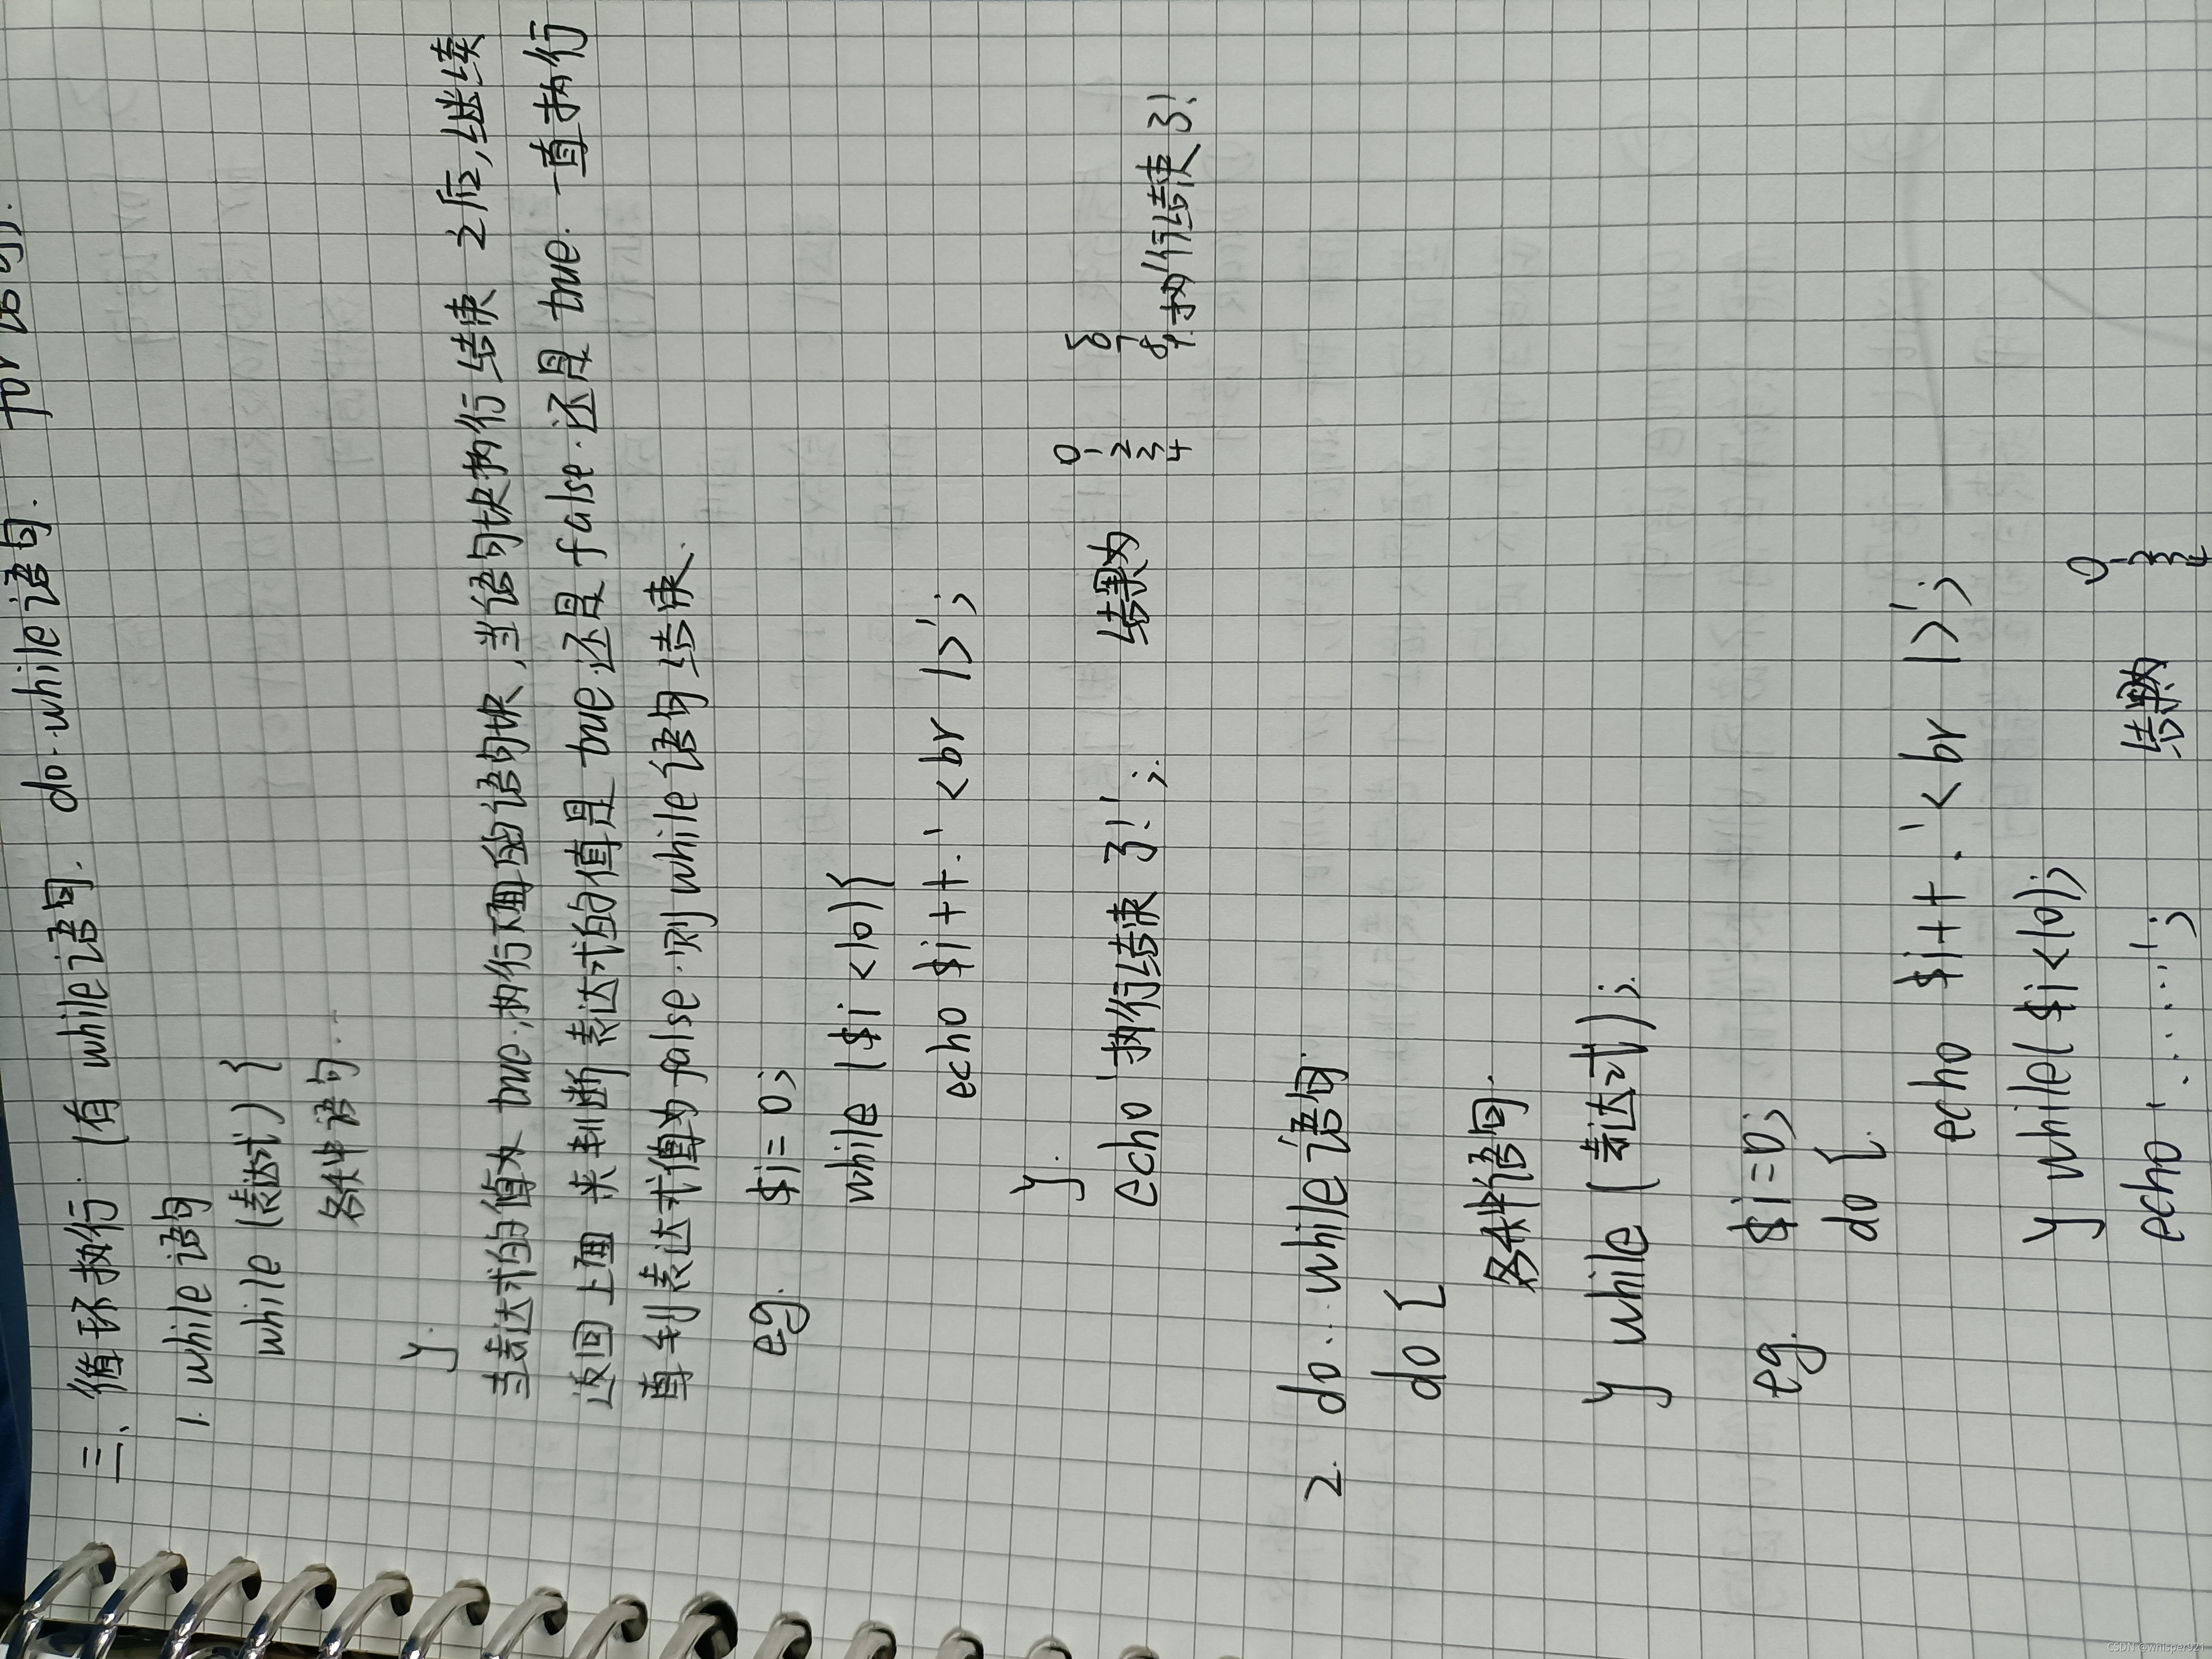 三、循环执行.(有while语句. do…while语句. for语句).
1. while语句
while (表达式) {
各种语句...
}.
当表达式的值为true,执行下面的语句块,当语句块执行结束之后,继续
返回上面来判断表达式的值是true,还是false.还是true.一直执行
直到表达式值为false.则while语句结束.
eg. $i=0;
while ($i<10){
echo $i++.'<br />';
}.
echo '执行结束了!'; 结果为 0 1 2 3 4 5 6 7 8 9.执行结束了!
2. do…while语句.
do {
各种语句.
} while (表达式);
eg. $i=0;
do {.
echo $i++.'<br />';
} while($i<10);
echo '......'; 结果为 0 1 2 3 4
CSDN @whisper921